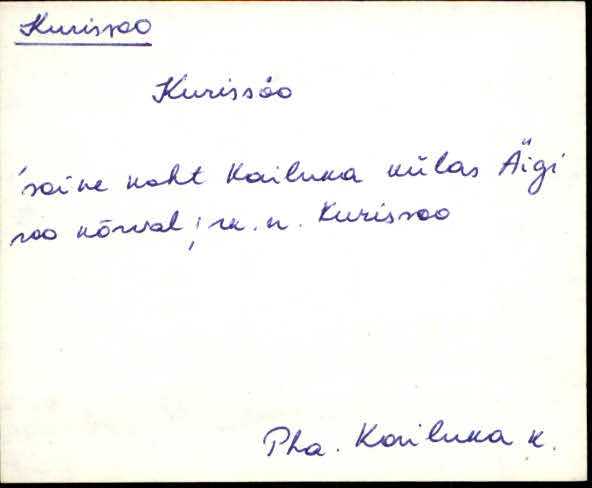 Kurissoo
Kurissòo
'soine koht Kailuka külas Äigi
soo kõrval; rk. n. Kurissoo
Pha. Kailuka k.